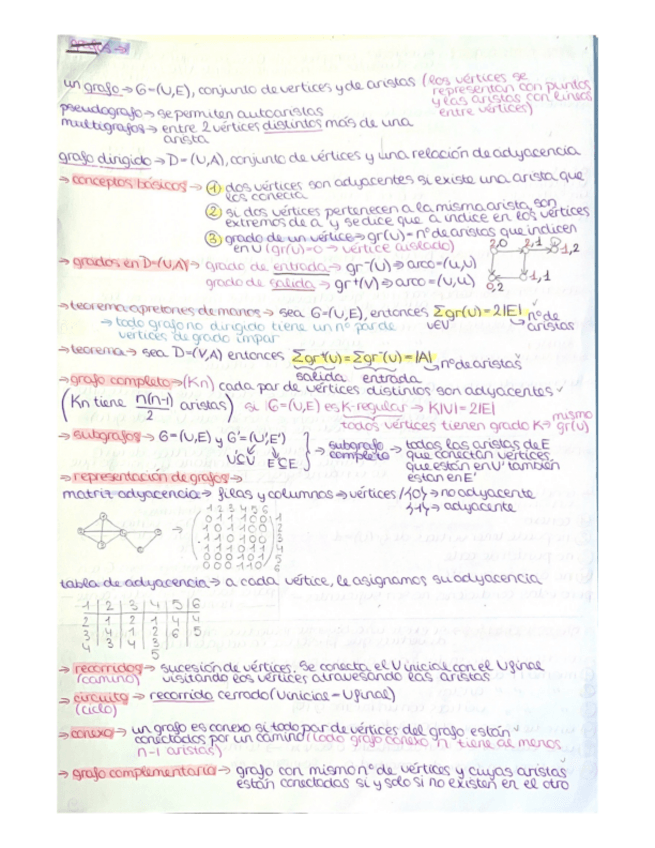 un grafo → G=(V,E), conjunto de vértices y de aristas (los vértices se
representan con puntos
y las aristas con líneas
entre vértices)
pseudografo → se permiten autoaristas
multigrafos → entre 2 vértices distintos más de una
arista
grafo dirigido → D=(V,A), conjunto de vértices y una relación de adyacencia
→ conceptos básicos → ① dos vértices son adyacentes si existe una arista que
los conecta
② si dos vértices pertenecen a la misma arista, son
extremos de a y se dice que a incide en los vértices
③ grado de un vértice → gr(v) = nº de aristas que indicen
en v (gr(v)=0 → vértice aislado)
2,0 2,1 1,2
→ grados en D=(V,A) → grado de entrada → gr⁻(v) ⇒ arco=(u,v)
grado de salida → gr⁺(v) ⇒ arco=(v,u)
1,1
0,2
→ teorema apretones de manos → sea G=(V,E), entonces Σgr(v)=2|E|
v∈V
nº de
aristas
→ todo grafo no dirigido tiene un nº par de
vértices de grado impar
→ teorema → sea D=(V,A) entonces Σgr⁺(v)=Σgr⁻(v)=|A|
salida entrada
nº de aristas
→ grafo completo → (Kn) cada par de vértices distintos son adyacentes
(Kn tiene n(n-1)/2 aristas) si G=(V,E) es K-regular → K|V|=2|E|
todos vértices tienen grado K → mismo
gr(v)
→ subgrafos → G=(V,E) y G'=(V',E')
V'⊆V E'⊆E
→ subgrafo
completo → todas las aristas de E
que conectan vértices
que están en V' también
están en E'
→ representación de grafos →
matriz adyacencia → filas y columnas → vértices / {0} → no adyacente
{1} → adyacente
1 2 3 4 5 6
0 1 1 1 0 0 1
1 0 1 1 0 0 2
1 1 0 1 0 0 3
1 1 1 0 1 1 4
0 0 0 1 0 1 5
0 0 0 1 1 0 6
tabla de adyacencia → a cada vértice, le asignamos su adyacencia
1 2 3 4 5 6
2 1 2 1 4 4
3 4 1 2 6 5
4 3 4 3
5
→ recorridos → sucesión de vértices. Se conecta el V inicial con el V final
(camino) visitando los vértices atravesando las aristas
→ circuito → recorrido cerrado (V inicios = V final)
(ciclo)
→ conexo → un grafo es conexo si todo par de vértices del grafo están
conectados por un camino (todo grafo conexo "n" tiene al menos
n-1 aristas)
→ grafo complementario → grafo con mismo nº de vértices y cuyas aristas
están conectadas si y solo si no existen en el otro